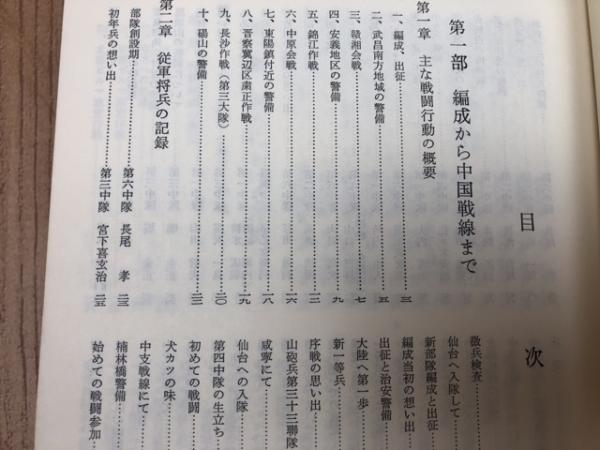 目
次
第一部 編成から中国戦線まで
第一章 主な戦闘行動の概要
一、編成、出征……三
二、武昌南方地域の警備……五
三、贛湘会戦……七
四、安義地区の警備……九
五、錦江作戦……一三
六、中原会戦……一六
七、東陽鎮付近の警備……一八
八、晋察冀辺区粛正作戦……一九
九、長沙作戦(第三大隊)……二〇
十、碭山の警備……二二
第二章 従軍将兵の記録
部隊創設期……第六中隊 長尾 孝 二三
初年兵の想い出……第三中隊 宮下喜玄治 二五
徴兵検査…
仙台へ入隊して…
新部隊編成と出征
編成当初の想い出
出征と治安警備…
大陸へ第一歩…
新一等兵…
序戦の思い出…
山砲兵第三十三聯隊
咸寧にて…
仙台への入隊…
第四中隊の生立ち…
初めての戦闘…
犬カツの味…
中支戦線にて…
楠林橋警備…
始めての戦闘参加…